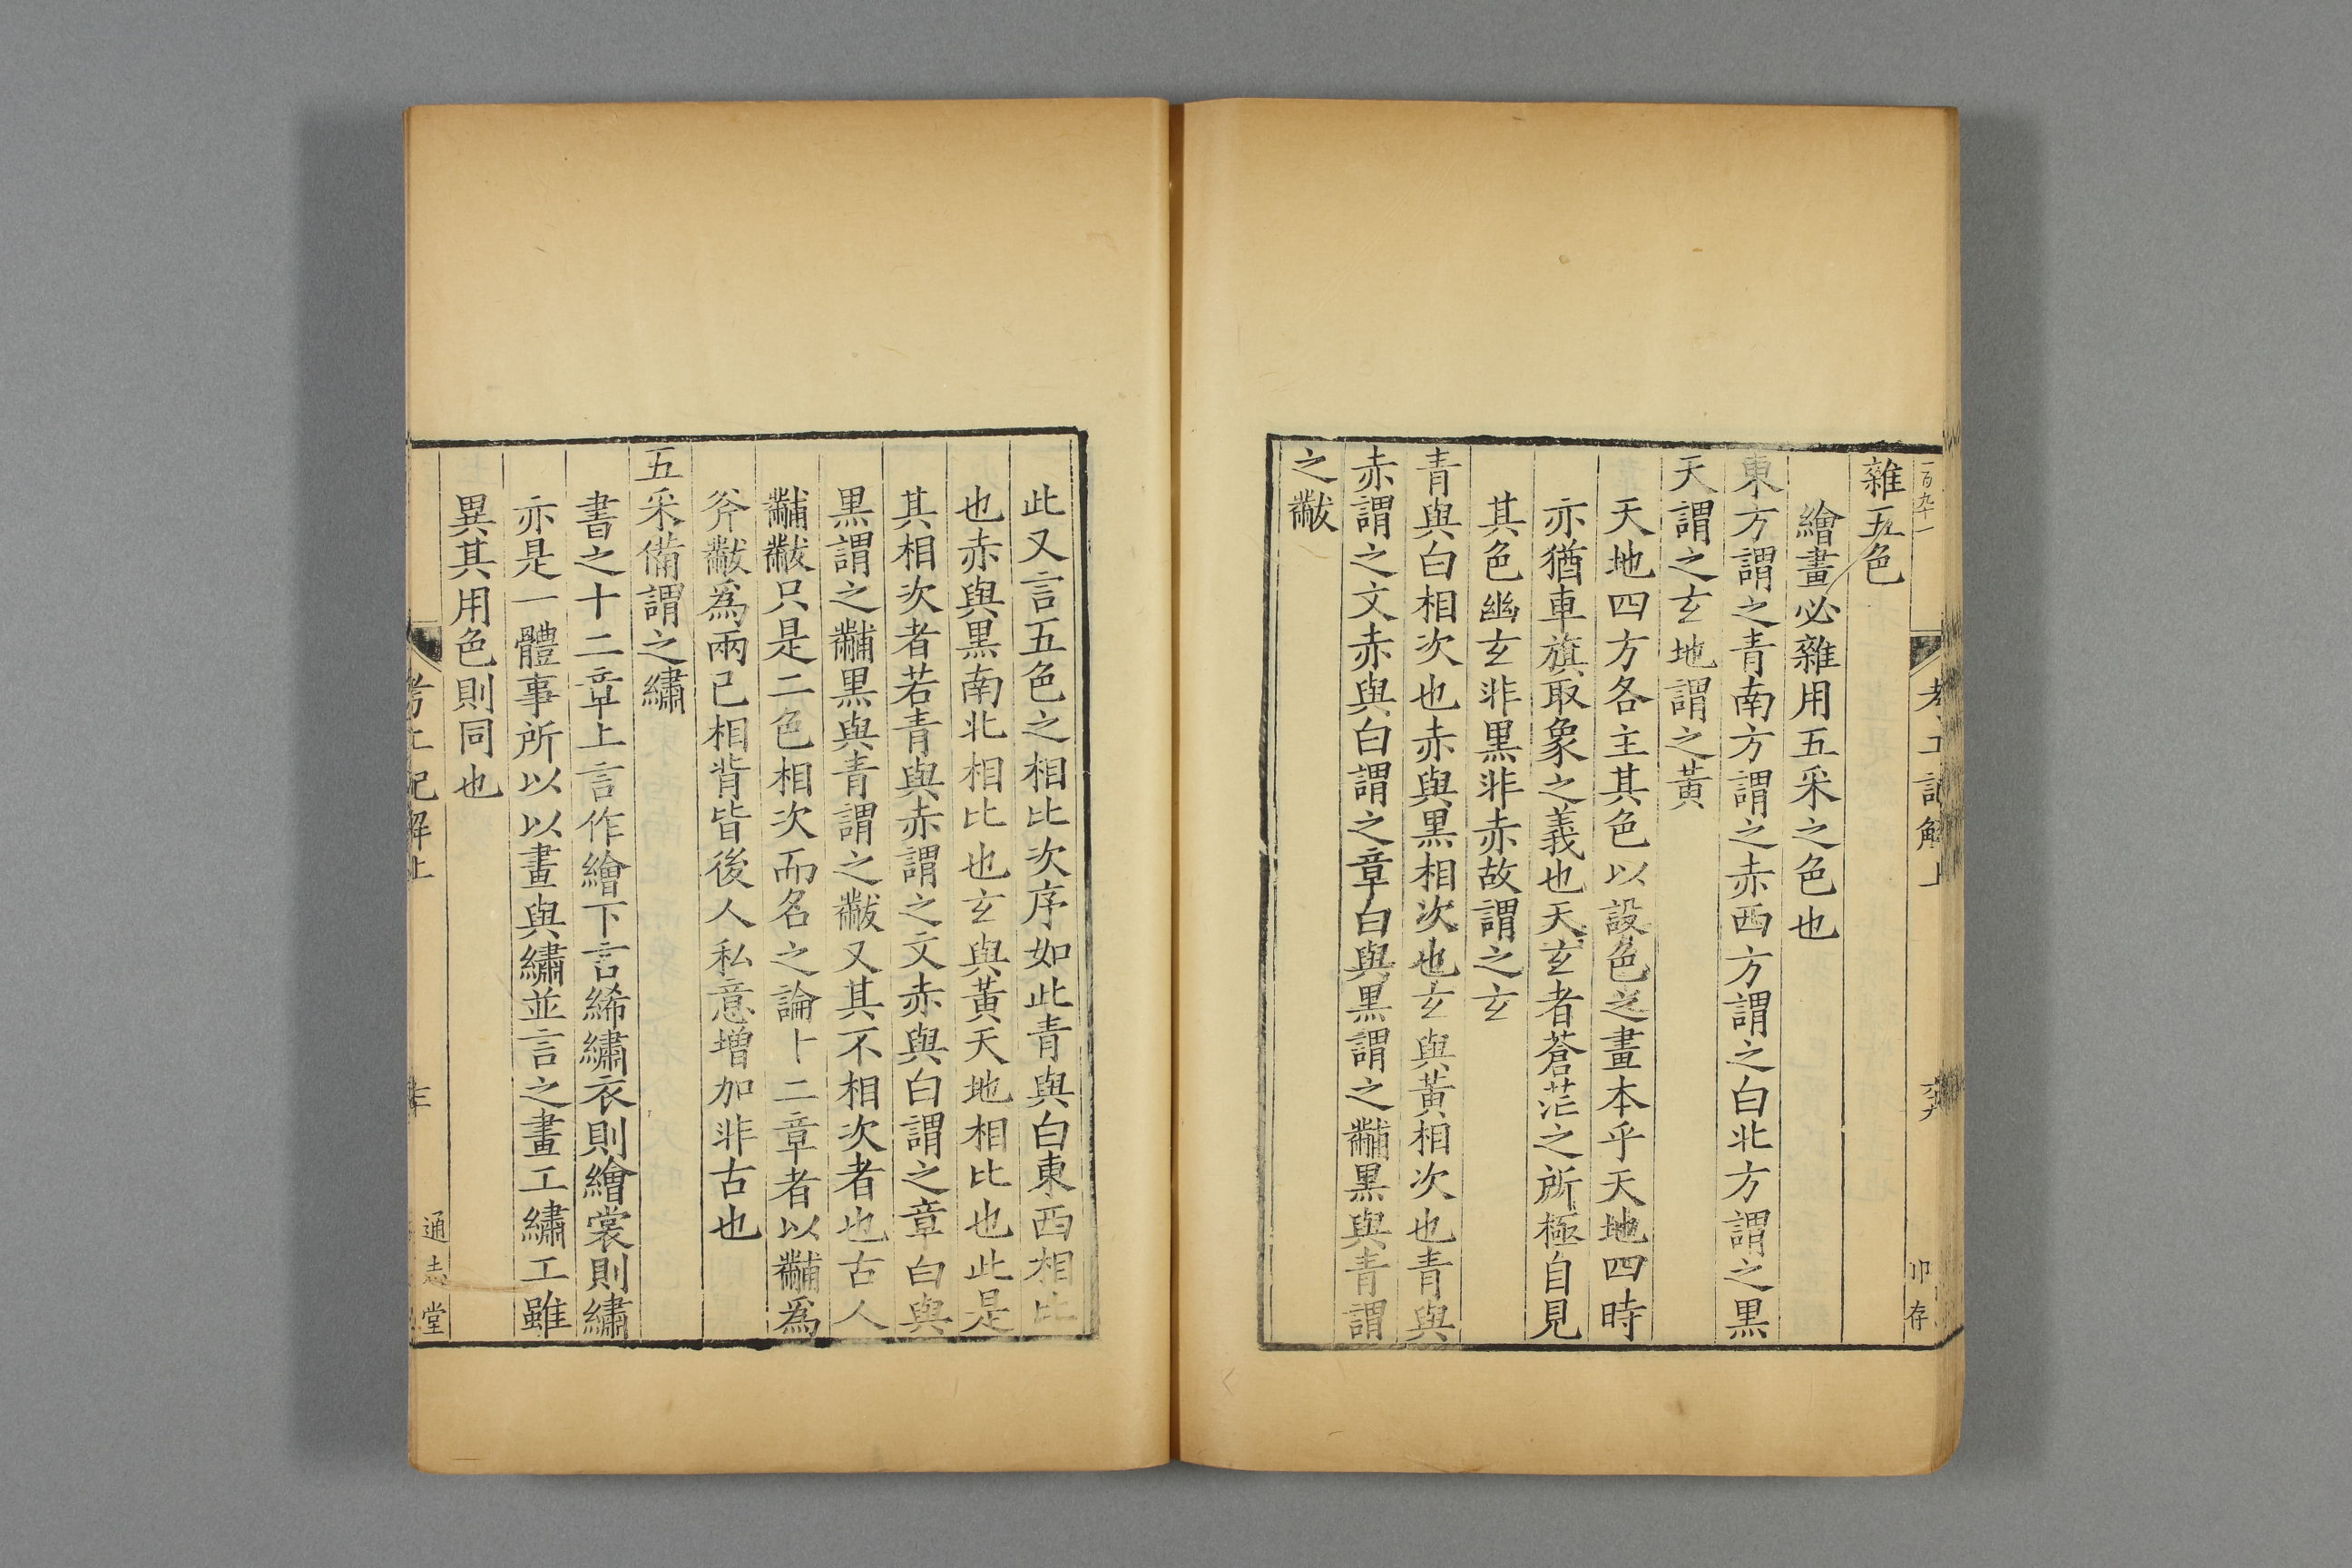 一百九十一
考工記解上
存
雜五色
繪畫必雜用五采之色也
東方謂之青南方謂之赤西方謂之白北方謂之黑
天謂之玄地謂之黃
天地四方各主其色以設色之畫本乎天地四時
亦猶車旗取象之義也天玄者蒼茫之所極自見
其色幽玄非黑非赤故謂之玄
青與白相次也赤與黑相次也玄與黃相次也青與
赤謂之文赤與白謂之章白與黑謂之黼黑與青謂
之黻
此又言五色之相比次序如此青與白東西相比
也赤與黑南北相比也玄與黃天地相比也此是
其相次者若青與赤謂之文赤與白謂之章白與
黑謂之黼黑與青謂之黻又其不相次者也古人
黼黻只是二色相次而名之論十二章者以黼爲
斧黻爲兩己相背皆後人私意增加非古也
五采備謂之繡
書之十二章上言作繪下言絺繡衣則繪裳則繡
亦是一體事所以以畫與繡並言之畫工繡工雖
異其用色則同也
考工記解上
通志堂